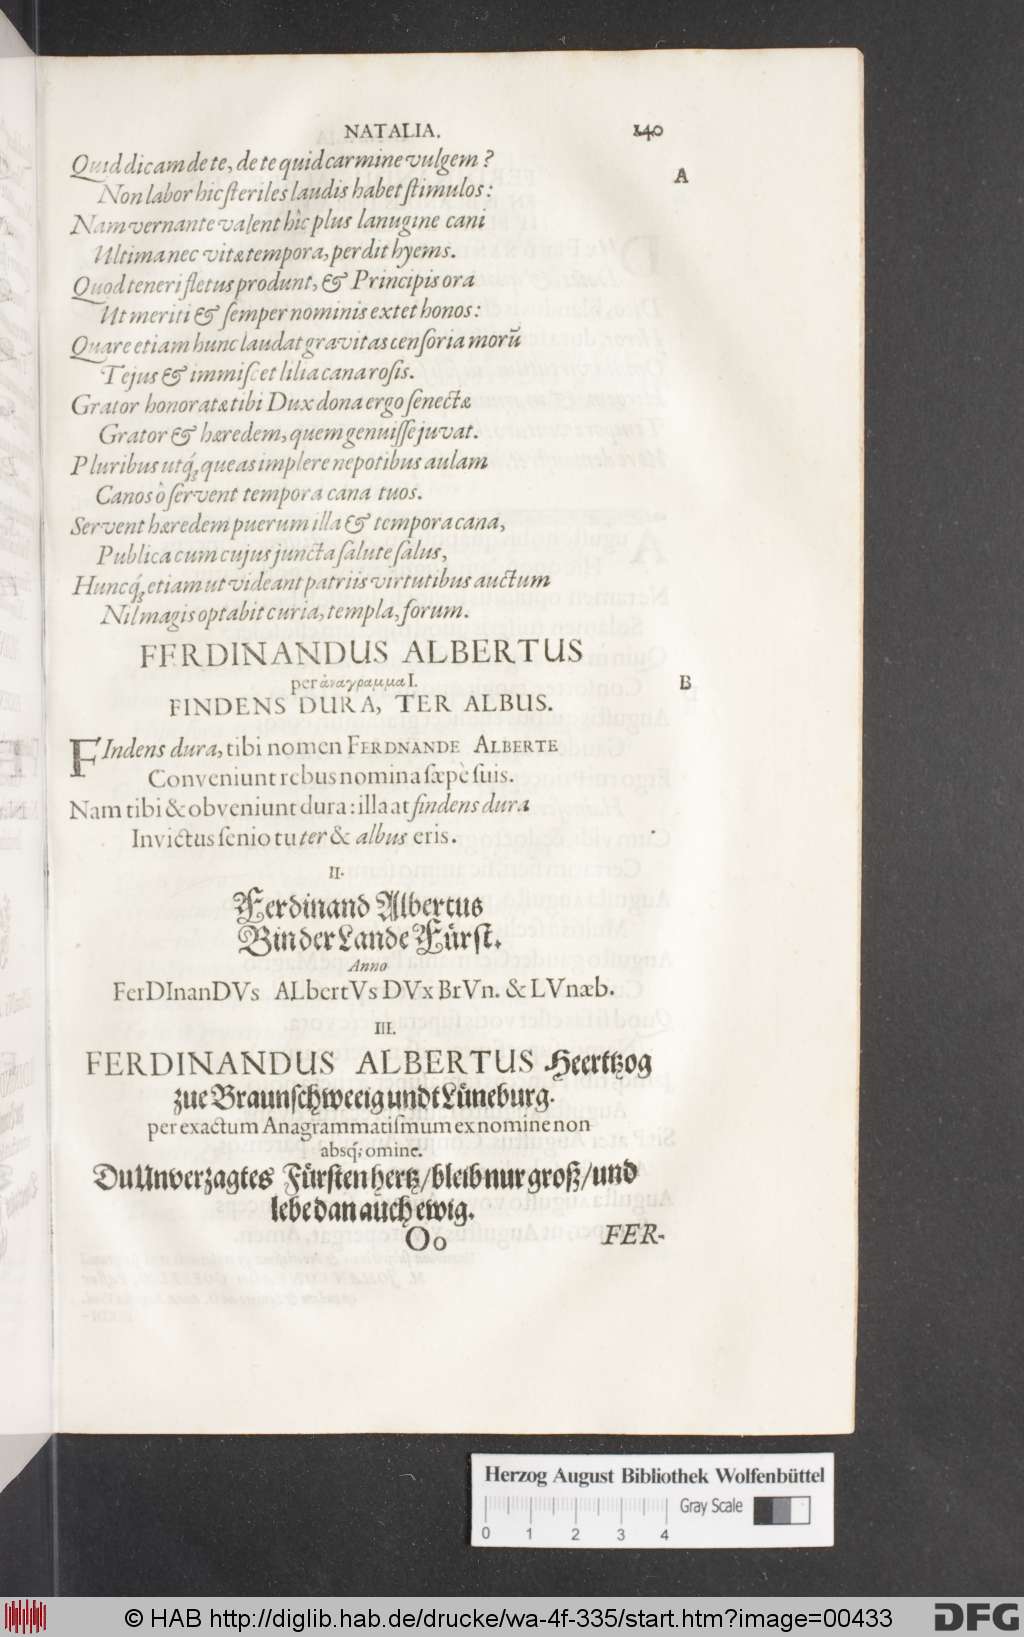 NATALIA. 140
Quid dicam de te, de te quid carmine vulgem?
A
Non labor hic ſteriles laudis habet ſtimulos:
Nam vernante valent hìc plus lanugine cani
Ultima nec vitæ tempora, perdit hyems.
Quod teneri fletus produnt, & Principis ora
Ut meriti & ſemper nominis extet honos:
Quare etiam hunc laudat gravitas cenſoria morū
Tejus & immiſcet lilia cana roſis.
Grator honoratæ tibi Dux dona ergo ſenectæ
Grator & hæredem, quem genuiſſe juvat.
Pluribus utq́; queas implere nepotibus aulam
Canos ò ſervent tempora cana tuos.
Servent hæredem puerum illa & tempora cana,
Publica cum cujus juncta ſalute ſalus,
Huncq́; etiam ut videant patriis virtutibus auctum
Nil magis optabit curia, templa, forum.
FERDINANDUS ALBERTUS
per ἀναγραμμα I.
B
FINDENS DURA, TER ALBUS.
FIndens dura, tibi nomen FERDNANDE ALBERTE
Conveniunt rebus nomina ſæpè ſuis.
Nam tibi & obveniunt dura: illa at findens dura
Invictus ſenio tu ter & albus eris.
II.
Ferdinand Albertus
Bin der Lande Fürſt.
Anno
FerDInanDVs ALbertVs DVx BrVn. & LVnæb.
III.
FERDINANDUS ALBERTUS Heerttzog
zue Braunſchweeig undt Lüneburg.
per exactum Anagrammatiſmum ex nomine non
absq́; omine.
Du Unverzagtes Fürſten hertz/ bleib nur groß/ und
lebe dan auch ewig.
Oo FER-
Herzog August Bibliothek Wolfenbüttel
Gray Scale
0 1 2 3 4
© HAB http://diglib.hab.de/drucke/wa-4f-335/start.htm?image=00433
DFG